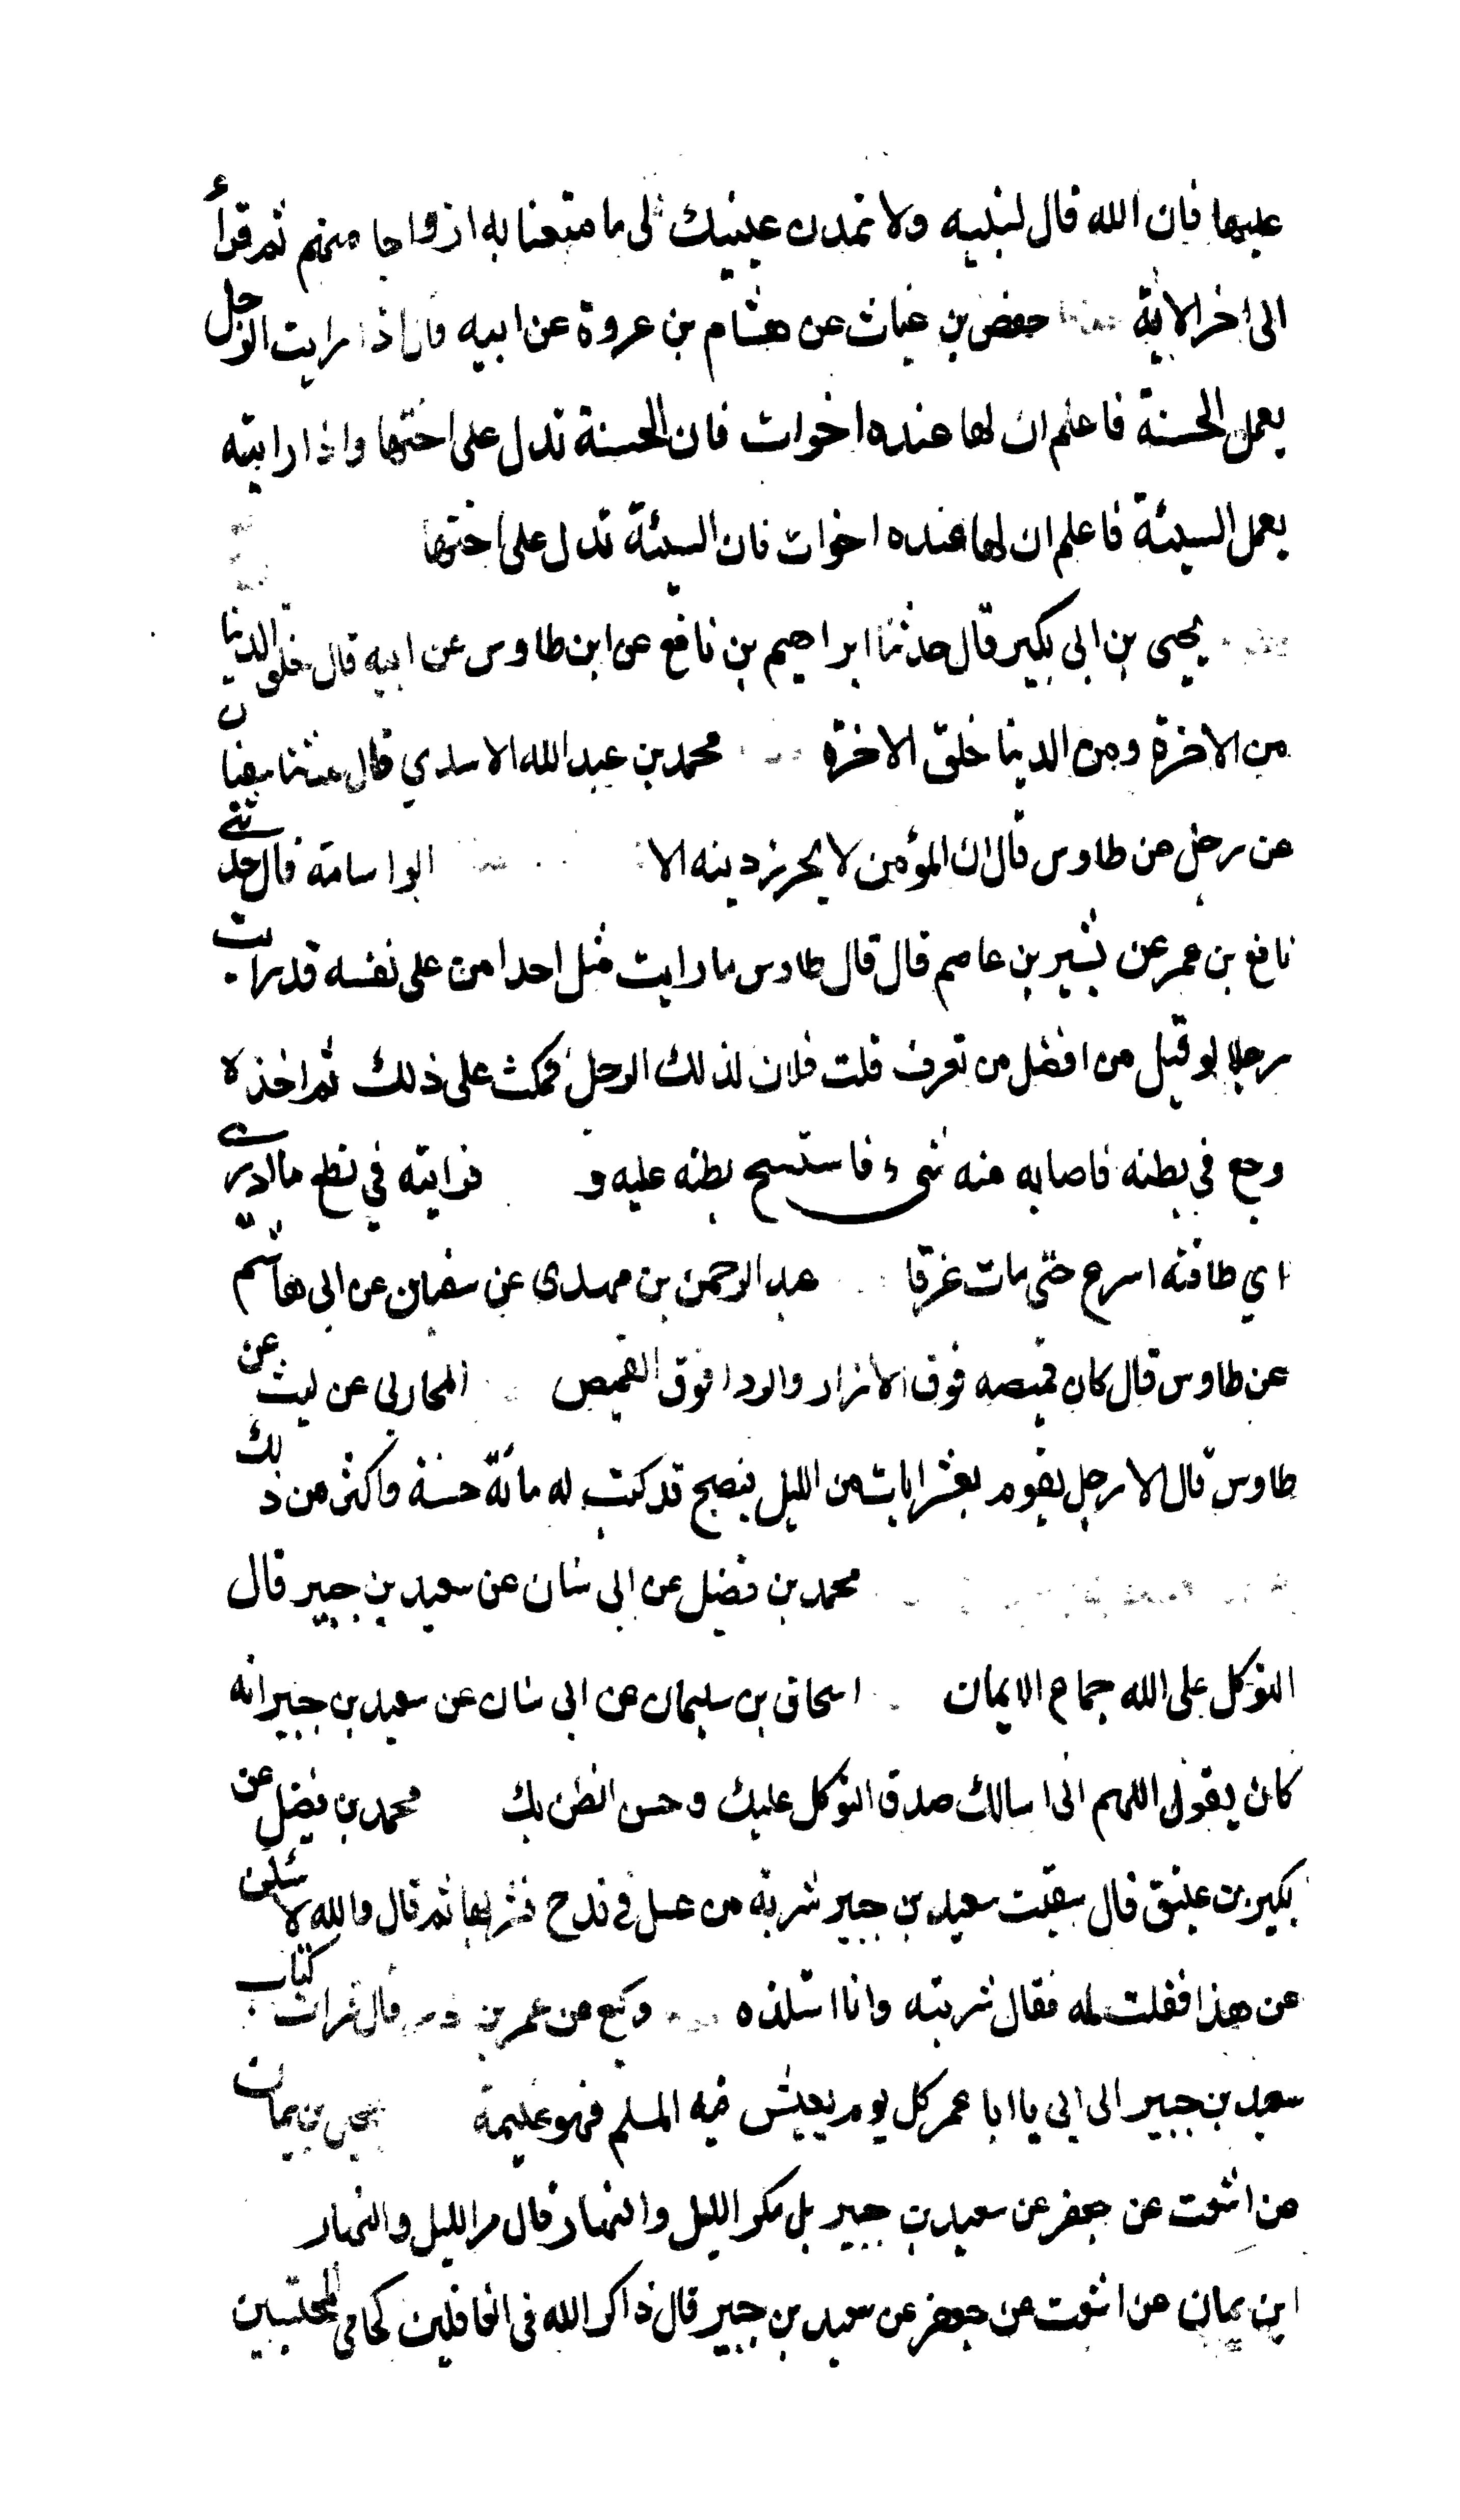 عليها فان الله قال لنبيه ولا تمدن عينيك الى ما متعنا به ازواجا منهم ثم قرأ
الى اخر الاية حفص بن غياث عن هشام بن عروة عن ابيه قال اذا رايت الرجل
يعمل الحسنة فاعلم ان لها عنده اخوات فان الحسنة تدل على اختها واذا رايته
يعمل السيئة فاعلم ان لها عنده اخوات فان السيئة تدل على اختها
يحيى بن ابى بكير قال حدثنا ابراهيم بن نافع عن ابن طاوس عن ابيه قال خلق الدنيا
من الاخرة ومن الدنيا خلق الاخرة محمد بن عبد الله الاسدي قال حدثنا سفيان
عن رجل عن طاوس قال ان المؤمن لا يحرز دينه الا ابو اسامة قال حدثني
نافع بن عمر عن بشير بن عاصم قال قال طاوس ما رايت مثل احد امن على نفسه قد رايت
رجلا لو قيل من افضل من تعرف قلت فلان لذلك الرجل فمكث على ذلك ثم اخذه
وجع في بطنه فاصابه منه شىء فاستسح بطنه عليه و فرايته في نطع ما ادري
اي طاقته اسرع حتى مات غرقا عبد الرحمن بن مهدى عن سفيان عن ابى هاشم
عن طاوس قال كان قميصه فوق الازار والردا فوق القميص المحاربى عن ليث عن
طاوس قال الا رجل يقوم بعشر ايات من الليل يصبح قد كتب له مائة حسنة واكثر من ذلك
محمد بن فضيل عن ابى سنان عن سعيد بن جبير قال
التوكل على الله جماع الايمان اسحاق بن سليمان عن ابى سنان عن سعيد بن جبير انه
كان يقول اللهم انى اسالك صدق التوكل عليك وحسن الظن بك محمد بن فضيل عن
بكير بن عتيق قال سقيت سعيد بن جبير شربة من عسل في قدح فشربها ثم قال والله لاسئلن
عن هذا فقلت له فقال شربته وانا استلذه وكيع عن عمر بن ذر قال قرات كتاب
سعيد بن جبير الى ابي يا ابا عمر كل يوم يعيش فيه المسلم فهو غنيمة يحيى بن يمان
عن اشعث عن جعفر عن سعيد بن جبير بل مكر الليل والنهار قال مر الليل والنهار
ابن يمان عن اشعث عن جعفر عن سعيد بن جبير قال ذاكر الله في الغافلين كحامى المحتسبين